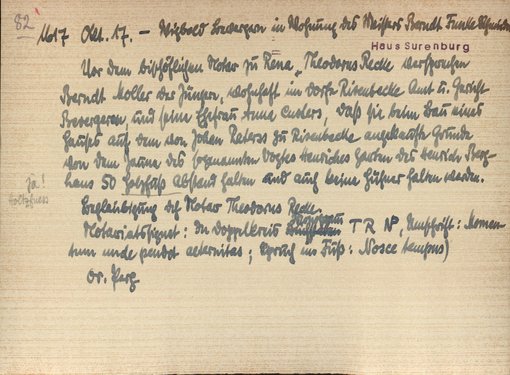 82
1617 Okt. 17. – Wigbold Bevergern in Wohnung des Meisters Berndt Funke
Haus Surenburg
Vor dem bischöflichen Notar zu Rena Theodorus Recke versprechen
Berndt Moller der Jüngere, wohnhaft im Dorfe Risenbecke Amt u. Gericht
Bevergeren und seine Ehefrau Anna Enders, daß sie beim Bau eines
Hauses auf dem von Johan Reterss zu Risenbecke angekauften Grunde
von dem Zaune des sogenannten Vogtes Henriches Garten des Henrich Berg-
haus 50 Holzfuß Abstand halten und auch keine Hühner halten werden.
ja!
Holtzfuess
Beglaubigung des Notar Theodorus Recke.
Notariatssignet: In Doppelkreis T R NP, Umschrift: Momen-
tum unde pendet aeternitas; Spruch im Fuß: Nosce tempus)
Or. Perg.